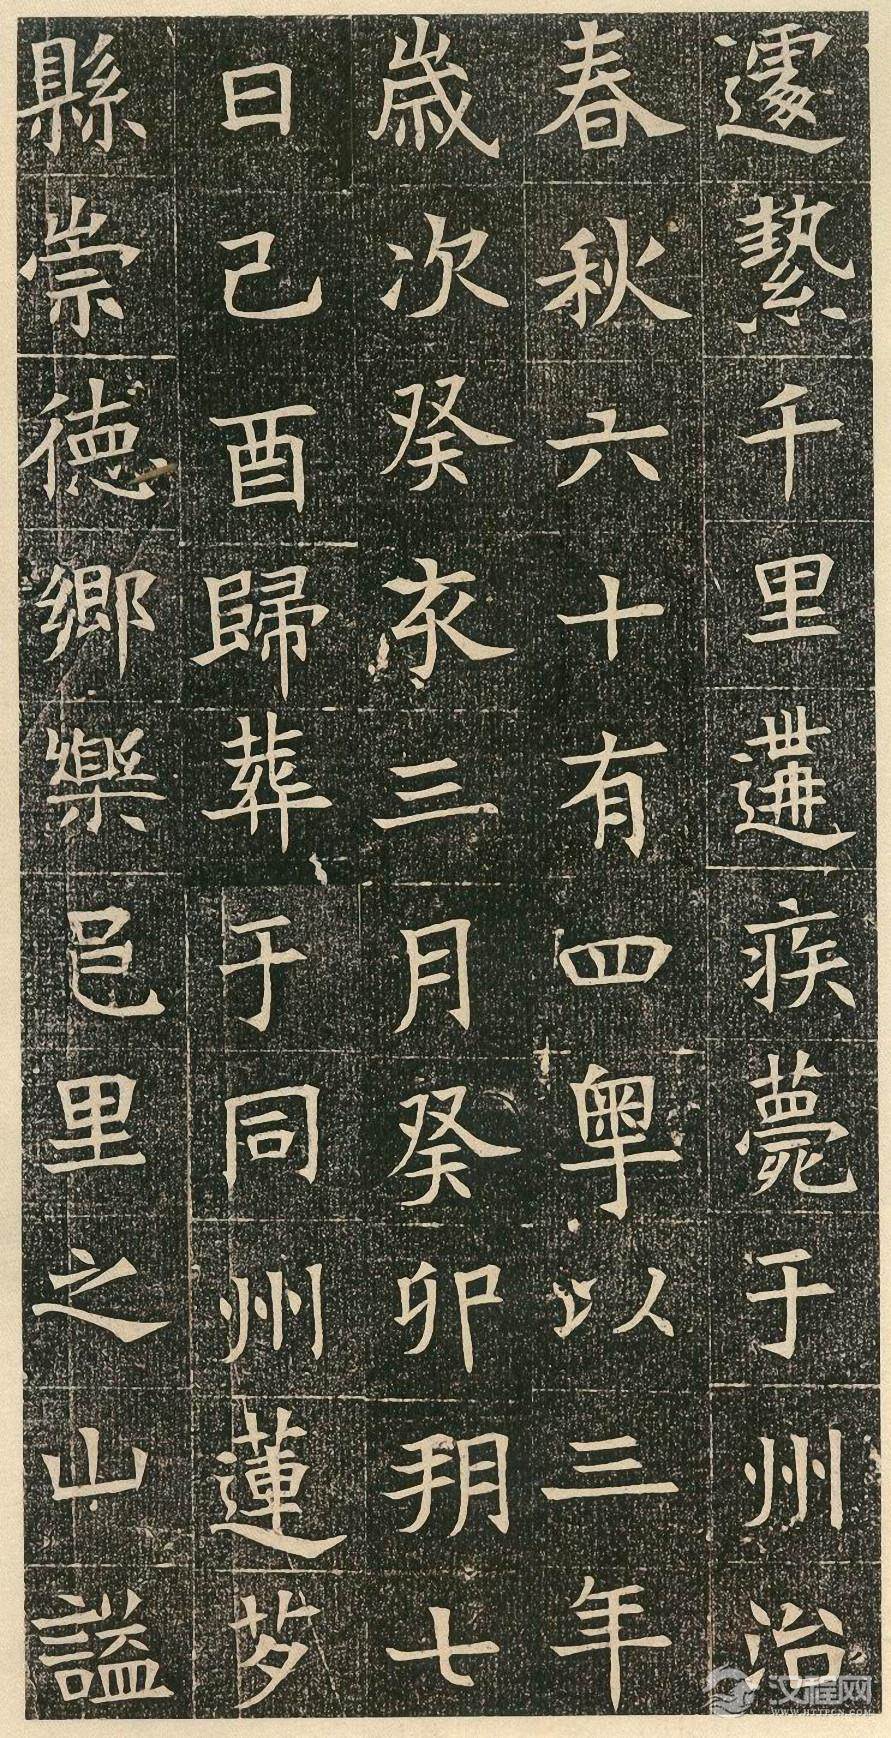 遽縶千里遘疾薨于州治
春秋六十有四粤以三年
歲次癸亥三月癸卯朔七
日己酉歸葬于同州蓮芍
縣崇德鄉樂邑里之山謚
汉程网
WWW.HTTPCN.COM